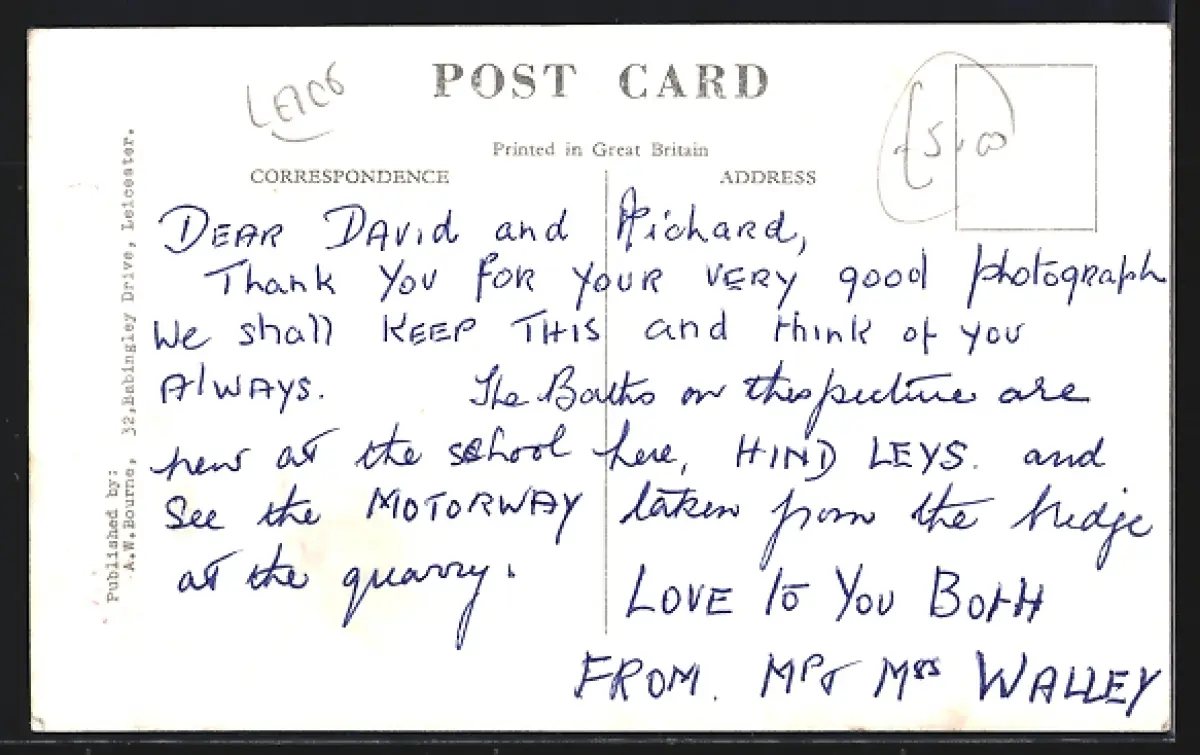 LEICS
POST CARD
£5.00
Printed in Great Britain
CORRESPONDENCE
ADDRESS
Published by:
A.W.Bourne, 32,Babingley Drive, Leicester.
DEAR DAViD and Richard,
Thank You FOR YOUR VERY good photograph
We shall KEEP THIS and think of you
AlWAYS. The Baths on this picture are
new at the school here, HIND LEYS. and
See the MOTORWAY taken from the bridge
at the quarry.
LOVE To You BotH
FROM. MR & MRS WALLEY